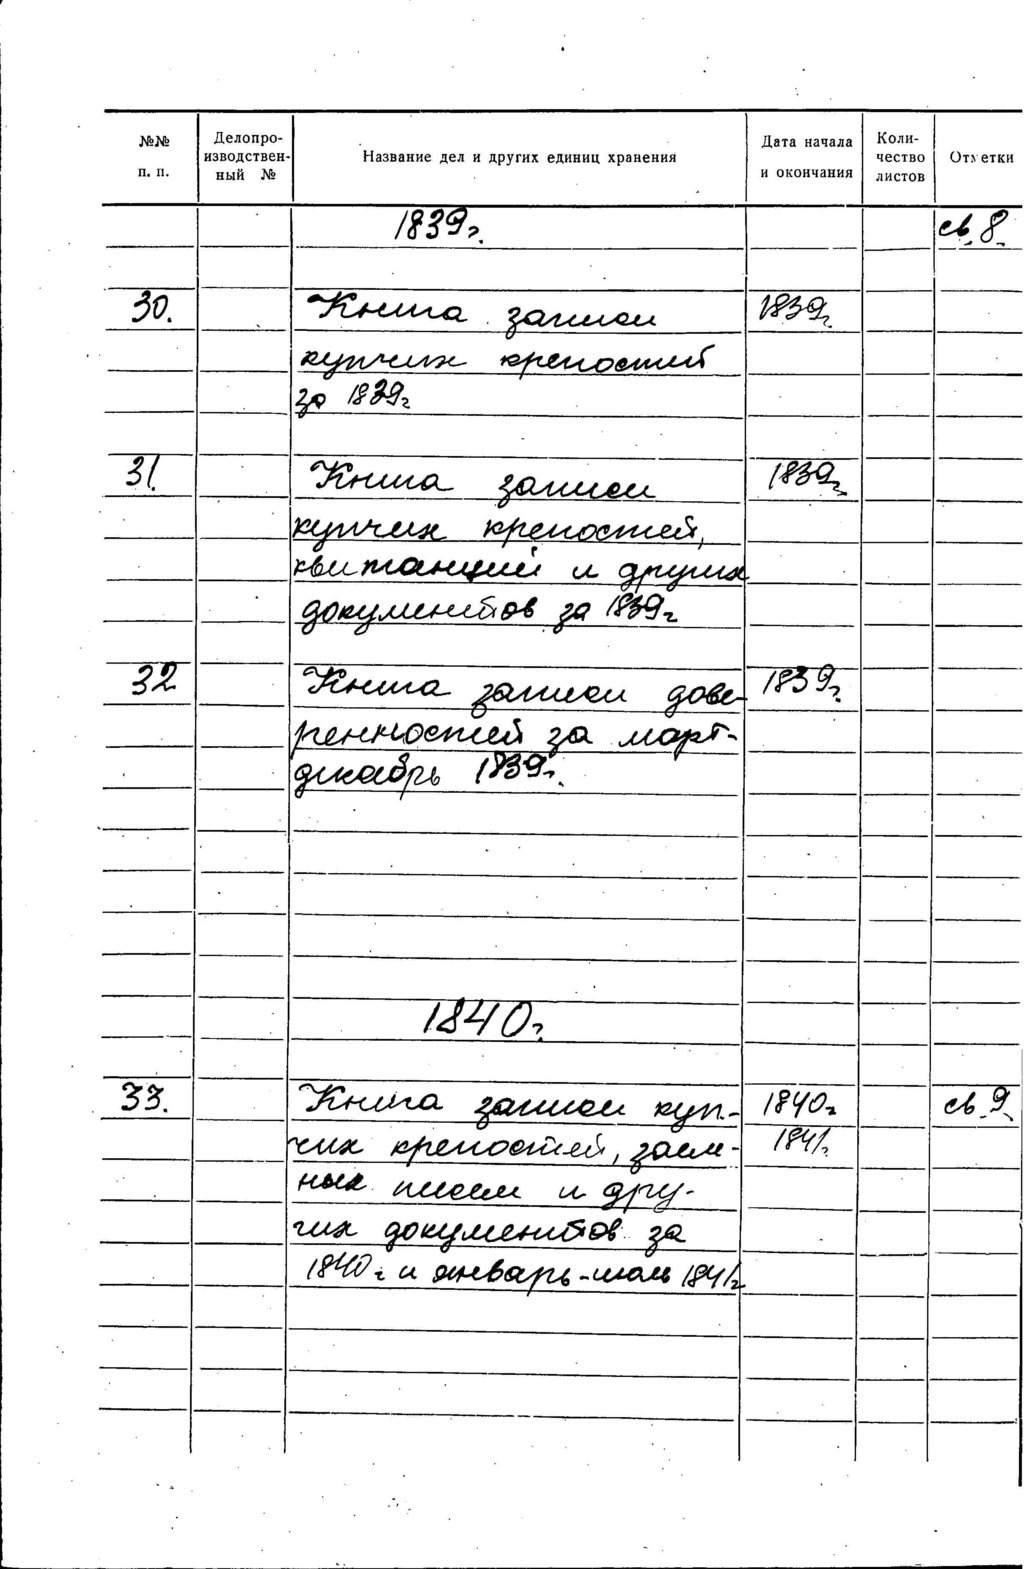 №№ п. п. Делопро-изводствен-ный № Название дел и других единиц хранения Дата начала и окончания Коли-чество листов Отметки
1839г. св. 8.
30. Книга записи 1839г.
купчих крепостей
за 1839г
31. Книга записи 1839г.
купчих крепостей,
квитанций и других
документов за 1839г
32 Книга записи дове- 1839г.
ренностей за март-
декабрь 1839г.
1840г.
33. Книга записи куп- 1840г св. 9.
чих крепостей, заем- 1841г.
ных писем и дру-
гих документов за
1840г и январь-июль 1841г